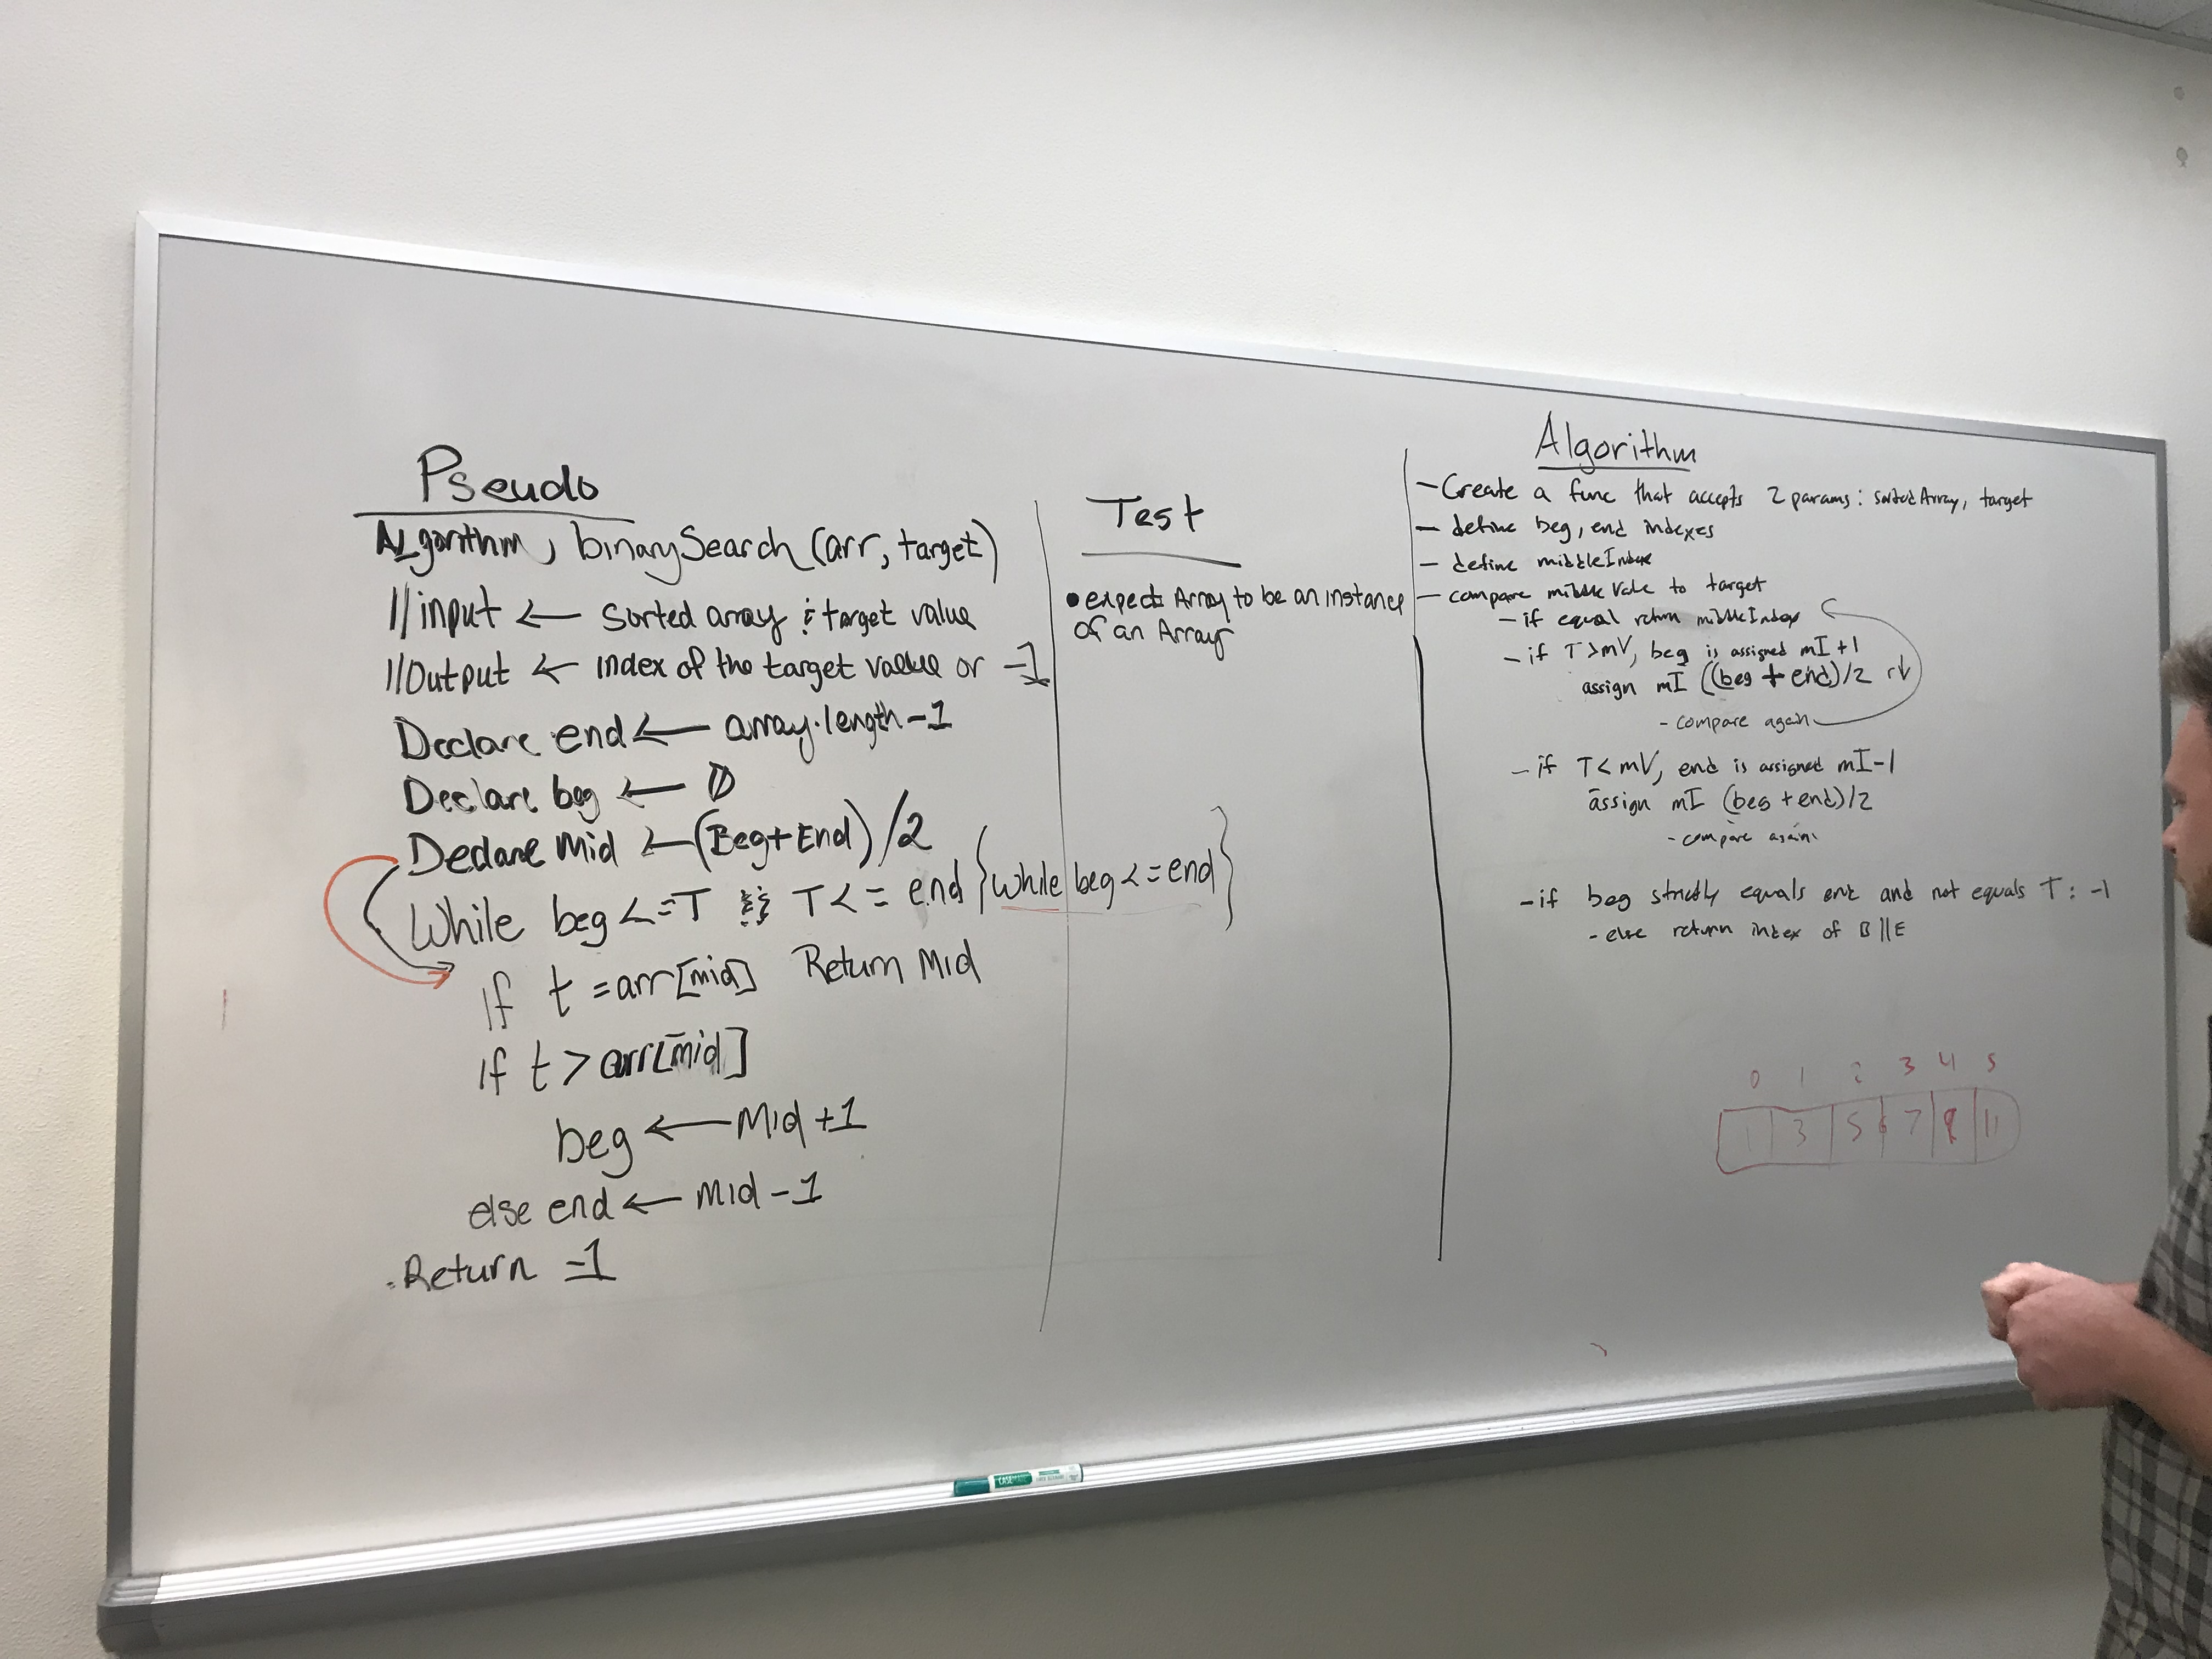 Pseudo
ALgorithm, binarySearch (arr, target)
//input ← Sorted array & target value
//Output ← index of the target value or -1
Declare end ← array.length-1
Declare beg ← 0
Declare Mid ← (Beg+End)/2
While beg <= T && T <= end {While beg <= end}
if t = arr[mid] Return Mid
if t > arr[mid]
beg ← Mid+1
else end ← Mid-1
Return -1
Test
• expect Array to be an instance
of an Array
Algorithm
- Create a func that accepts 2 params: sortedArray, target
- define beg, end indexes
- define middleIndex
- compare middle Value to target
- if equal return middleIndex
- if T>mV, beg is assigned mI+1
assign mI ((beg + end)/2 r↓
- compare again
- if T<mV, end is assigned mI-1
assign mI (beg+end)/2
- compare again
- if beg strictly equals end and not equals T: -1
- else return index of B||E
0 1 2 3 4 5
1 3 5 7 9 11
CASEMATE